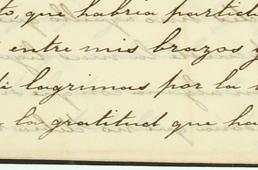 que habria partido
entre mis brazos y
lagrimas por la
la gratitud que ha